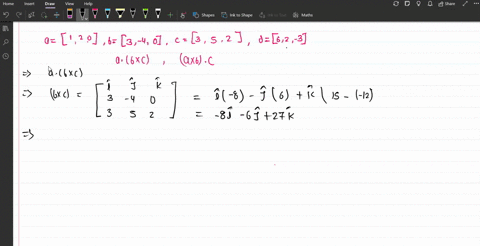 Home Insert Draw View Help
Shapes Ink to Shape Ink to Math
a = [1, 2 0] , b = [3, -4, 0] , c = [3 , 5 . 2 ] , d = [6, 2, -3]
a . (b × c) , (a × b) . c
⇒ a . (b × c)
⇒ (b × c) = [ î ĵ k̂
3 -4 0
3 5 2 ] = î (-8) - ĵ (6) + k̂ ( 15 - (-12)
= -8î - 6ĵ + 27k̂
⇒